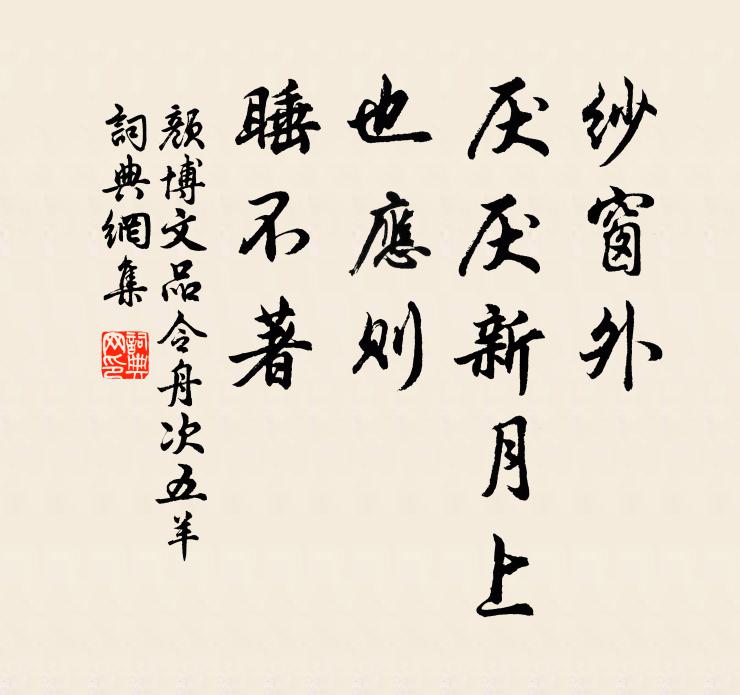 紗窗外
厌厌新月上
也應則
睡不著
顏博文品令舟次五羊
詞典網集
詞典网印